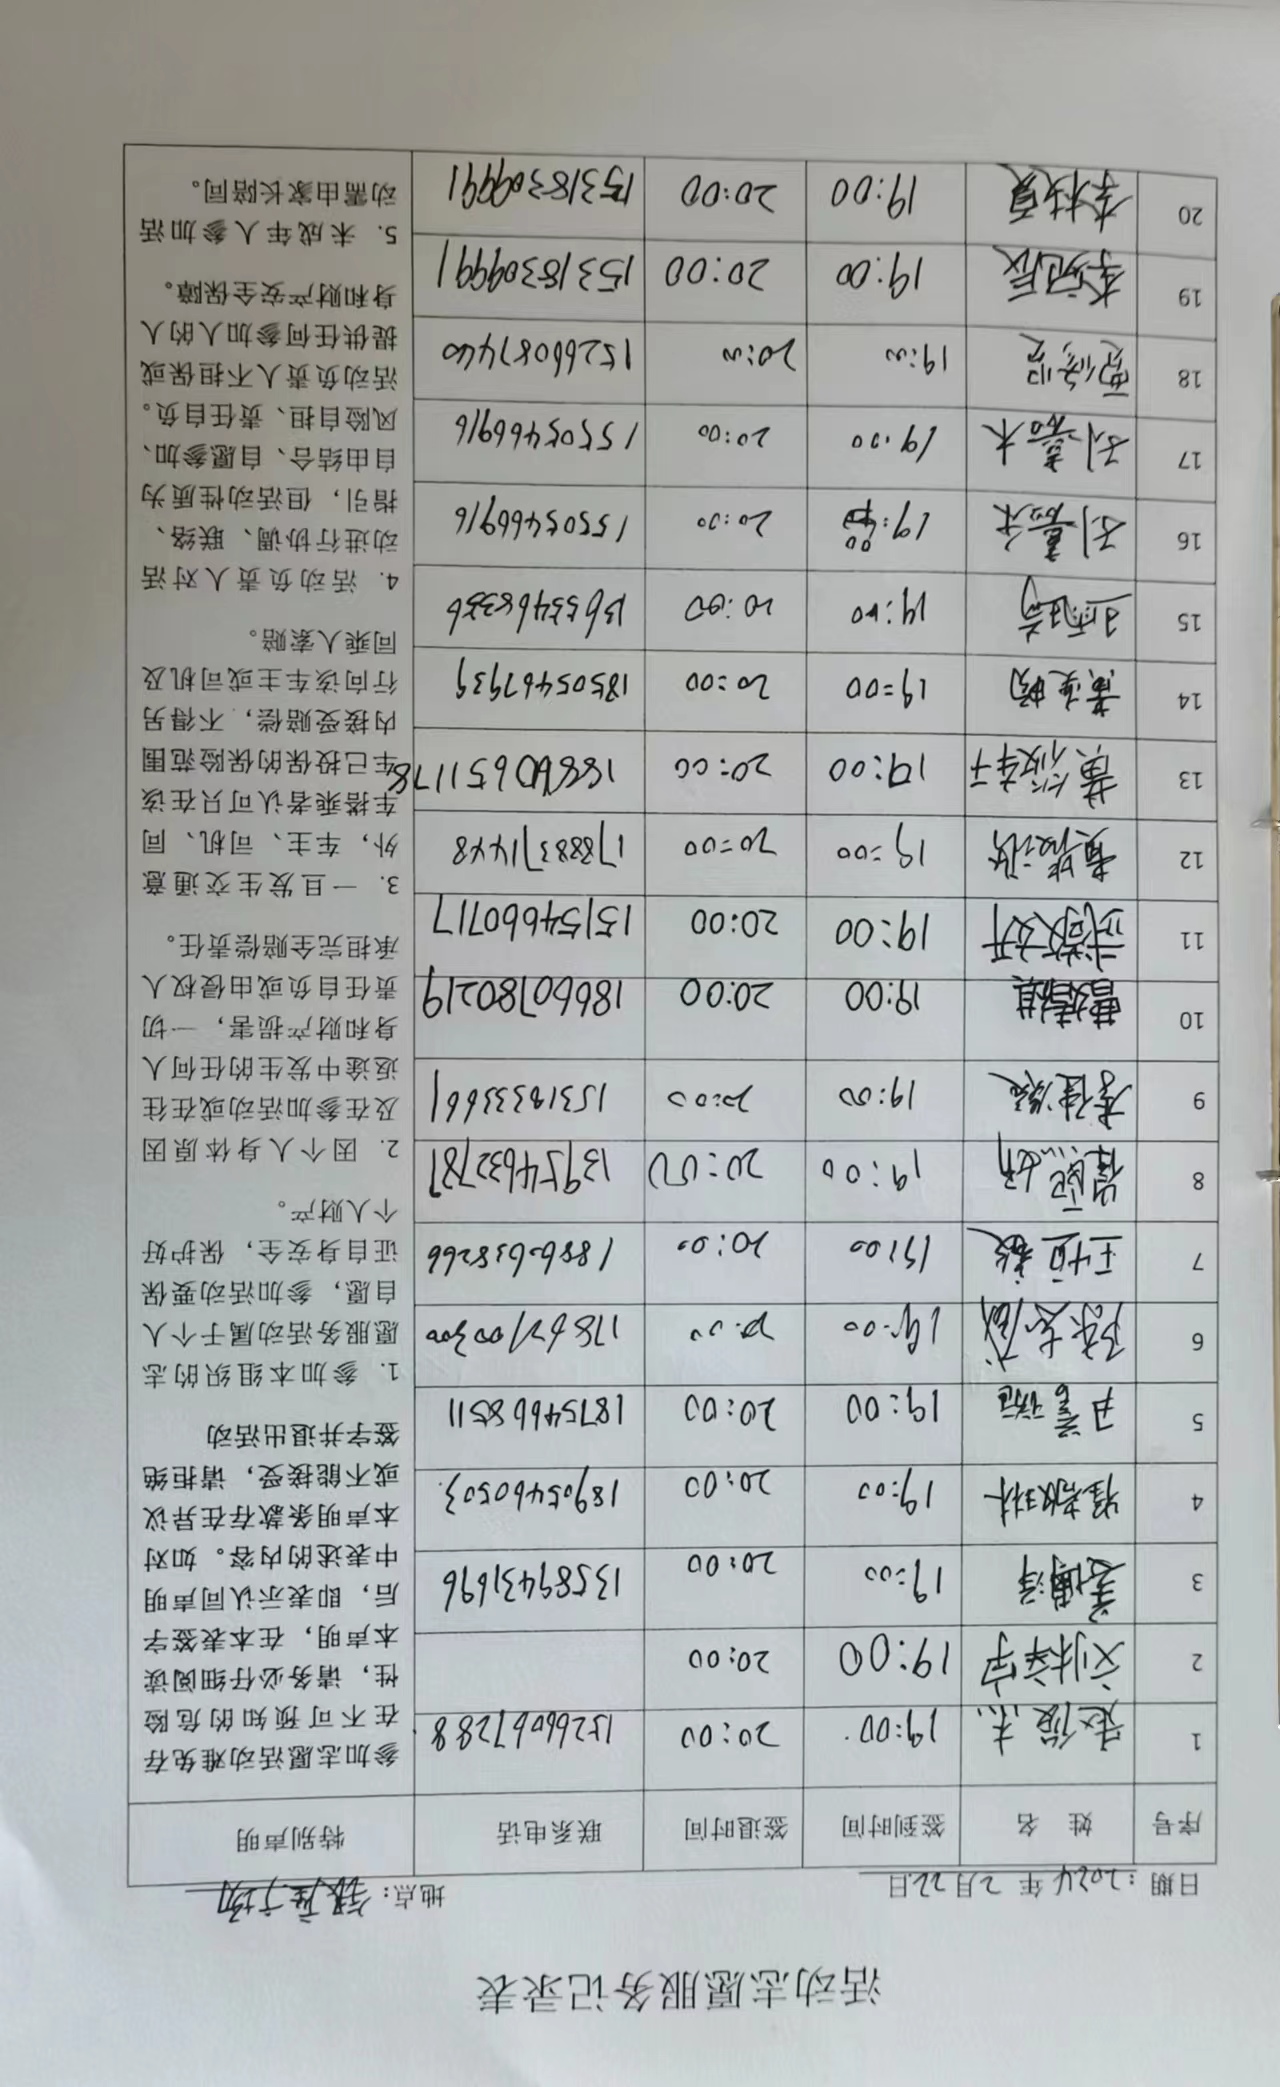 活动志愿服务记录表
日期：2024年2月22日 地点：
序号 姓 名 签到时间 签退时间 联系电话 特别声明
1 19:00 20:00 15266067288
2 19:00 20:00
3 19:00 20:00 13589431696
4 19:00 20:00 18905460503
5 19:00 20:00 18754668511
6 19:00 20:00
7 王恒毅 19:00 20:00 18860638266
8 19:00 20:00 13954632787
9 19:00 20:00 15318333661
10 19:00 20:00 18660780219
11 武敬妍 19:00 20:00 15154660717
12 19:00 20:00 17888371448
13 19:00 20:00
14 19:00 20:00 18505467939
15 19:00 20:00
16 刘嘉禾 19:00 20:00 15505466916
17 刘嘉木 19:00 20:00 15505466916
18 贾修说 19:00 20:00 15266087440
19 李宛辰 19:00 20:00 15318309991
20 李枝夏 19:00 20:00 15318309991
参加志愿活动难免存
在不可预知的危险
性，请务必仔细阅读
本声明，在本表签字
后，即表示认同声明
中表述的内容。如对
本声明条款存在异议
或不能接受，请拒绝
签字并退出活动
1. 参加本组织的志
愿服务活动属于个人
自愿，参加活动要保
证自身安全，保护好
个人财产。
2. 因个人身体原因
及在参加活动或在往
返途中发生的任何人
身和财产损害，一切
责任自负或由侵权人
承担完全赔偿责任。
3. 一旦发生交通意
外，车主、司机、同
车搭乘者认可只在该
车已投保的保险范围
内接受赔偿，不得另
行向该车主或司机及
同乘人索赔。
4. 活动负责人对活
动进行协调、联络、
指引，但活动性质为
自由结合、自愿参加、
风险自担、责任自负。
活动负责人不担保或
提供任何参加人的人
身和财产安全保障。
5. 未成年人参加活
动需由家长陪同。